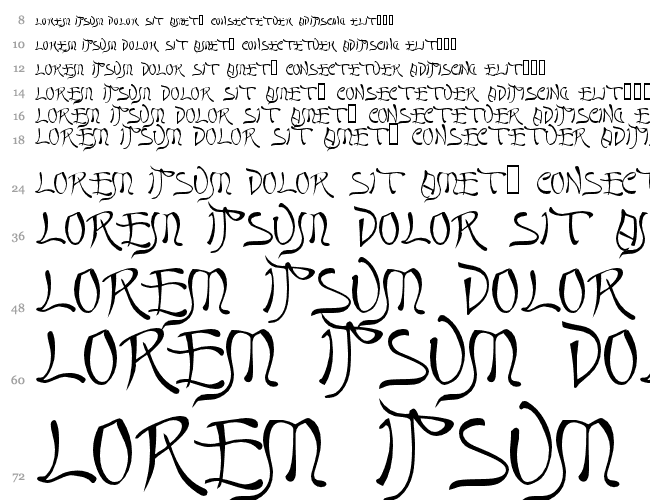 8 LOREM IPSUM DOLOR SIT AMET▯ CONSECTETUER ADIPISCING ELIT▯▯▯
10 LOREM IPSUM DOLOR SIT AMET▯ CONSECTETUER ADIPISCING ELIT▯▯▯
12 LOREM IPSUM DOLOR SIT AMET▯ CONSECTETUER ADIPISCING ELIT▯▯▯
14 LOREM IPSUM DOLOR SIT AMET▯ CONSECTETUER ADIPISCING ELIT▯▯▯
16 LOREM IPSUM DOLOR SIT AMET▯ CONSECTETUER ADIPISCING EL
18 LOREM IPSUM DOLOR SIT AMET▯ CONSECTETUER ADIPI
24 LOREM IPSUM DOLOR SIT AMET▯ CONSECT
36 LOREM IPSUM DOLOR SIT A
48 LOREM IPSUM DOLOR
60 LOREM IPSUM DO
72 LOREM IPSUM